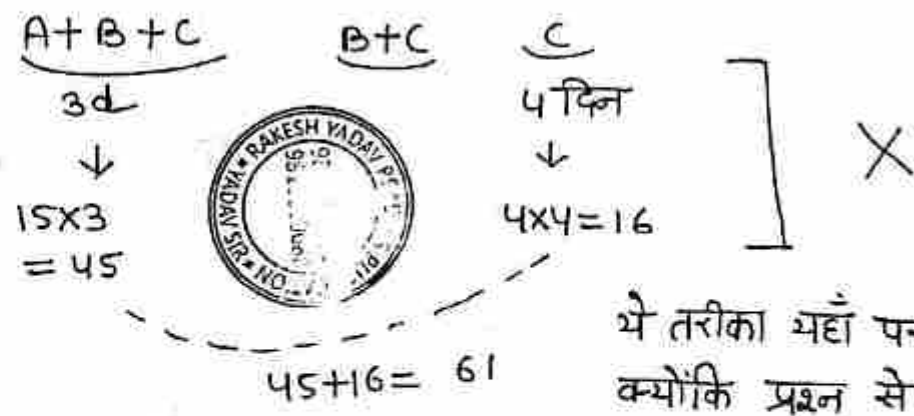 A+B+C B+C C
3d 4 दिन
↓ ↓
15x3 4x4=16
= 45
X
RAKESH YADAV
45+16= 61
ये तरीका यहाँ
क्योंकि प्रश्न से